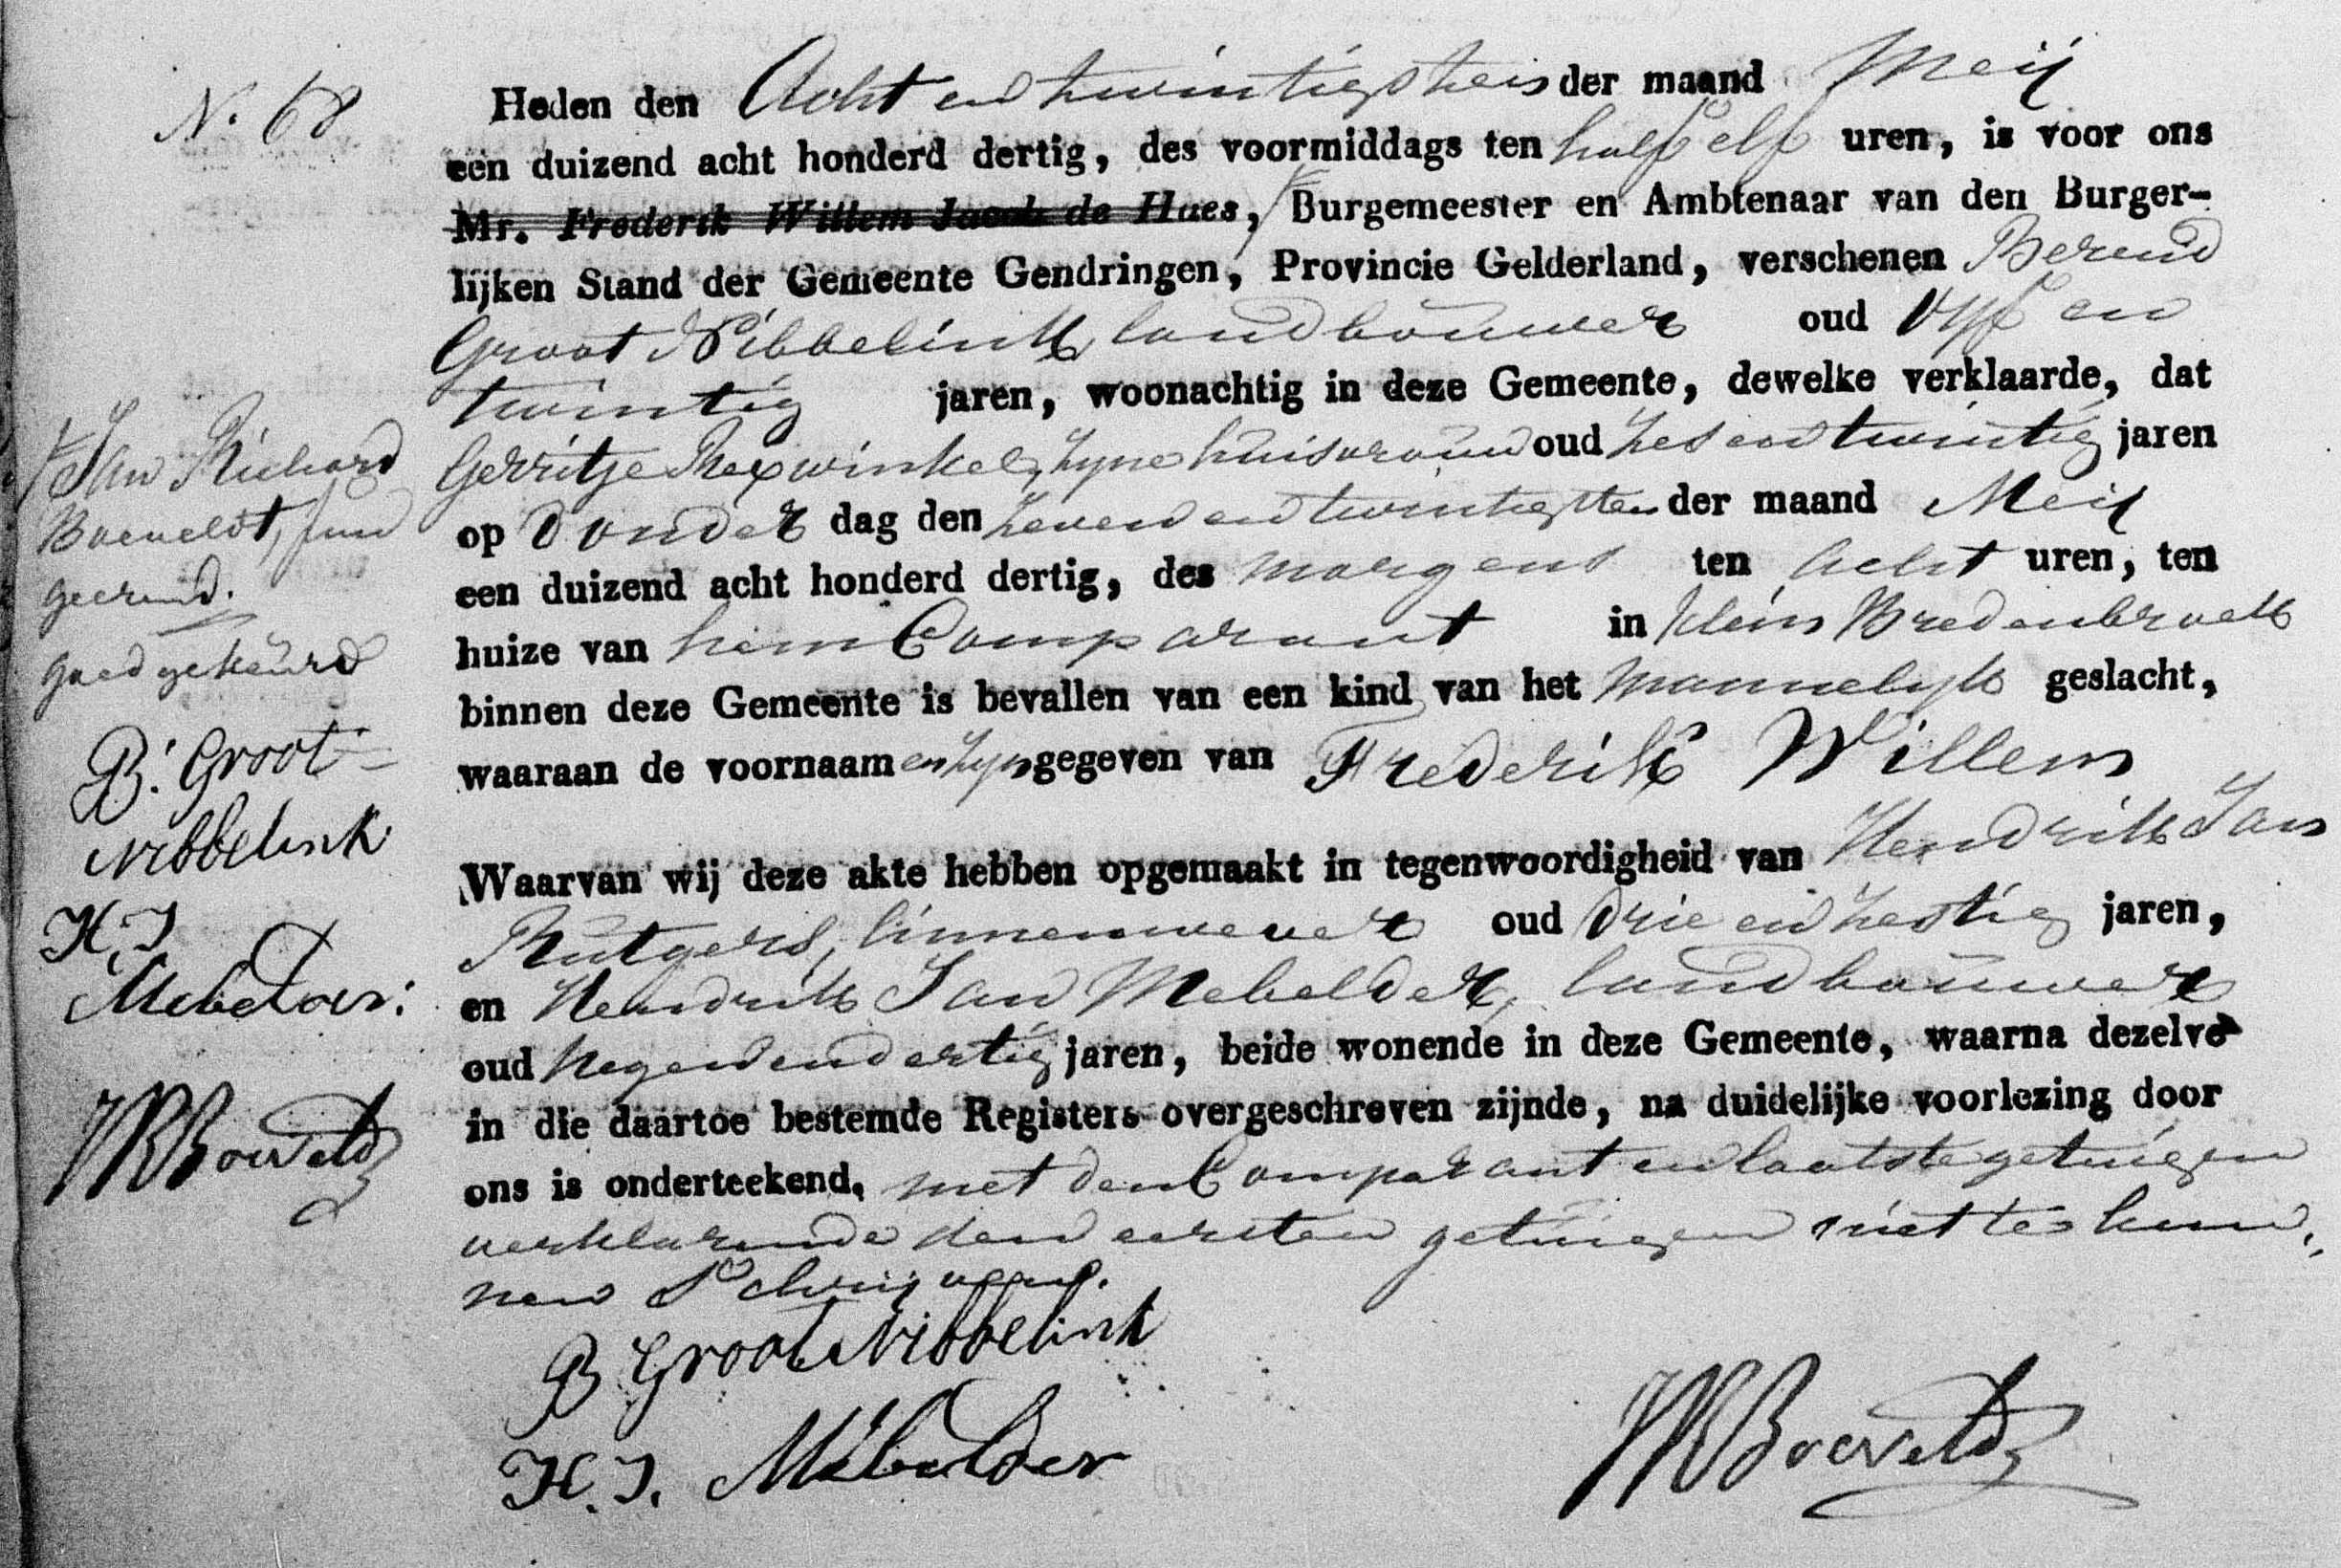 N. 68
Heden den Acht en twintigsten der maand Meij
een duizend acht honderd dertig, des voormiddags ten half elf uren, is voor ons
Mr. Frederik Willem Jacob de Haes, Burgemeester en Ambtenaar van den Burger-
lijken Stand der Gemeente Gendringen, Provincie Gelderland, verschenen Berend
Groot Nibbelink, landbouwer oud vyf en
twintig jaren, woonachtig in deze Gemeente, dewelke verklaarde, dat
Gerritje Rexwinkel, zyne huisvrouw oud zes en twintig jaren
op donder dag den zeven en twintigsten der maand Meij
een duizend acht honderd dertig, des morgens ten acht uren, ten
huize van hem Comparant in klein Bredenbroek
binnen deze Gemeente is bevallen van een kind van het mannelyk geslacht,
waaraan de voornaam en zyn gegeven van Frederik Willem
Waarvan wij deze akte hebben opgemaakt in tegenwoordigheid van Hendrik Jan
Rutgers, linnenwever oud drie en zestig jaren,
en Hendrik Jan Mebelder, landbouwer
oud negen en dertig jaren, beide wonende in deze Gemeente, waarna dezelve
in die daartoe bestemde Registers overgeschreven zijnde, na duidelijke voorlezing door
ons is onderteekend, met den Comparant en laatste getuigen
verklarende den eersten getuigen niet te kun„
nen Schrijven.
B Groot Nibbelink
H. J. Mebelder
JRBoeveldt
Jan Richard
Boeveldt, fun
geerend.
goedgekeurd
B. Groot
Nibbelink
H. J.
Mebelder.
JRBoeveldt